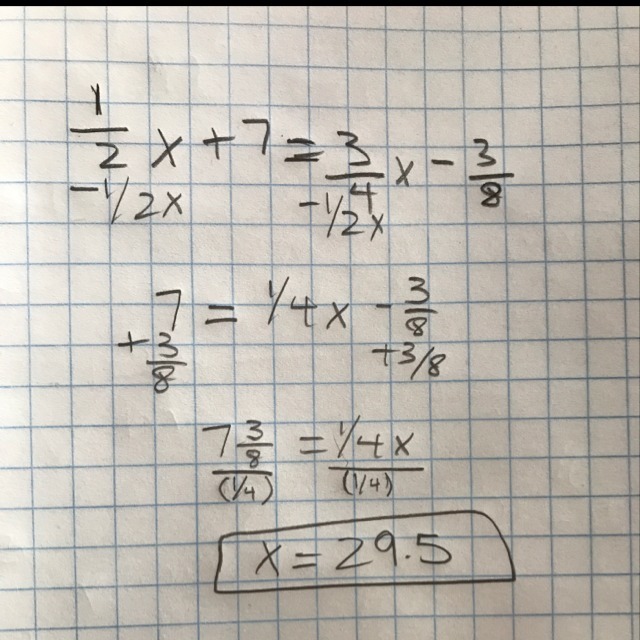 1/2 x + 7 = 3/4 x - 3/8
-1/2x -1/2x
7 = 1/4x - 3/8
+3/8 +3/8
7 3/8 = 1/4x
(1/4) (1/4)
x = 29.5